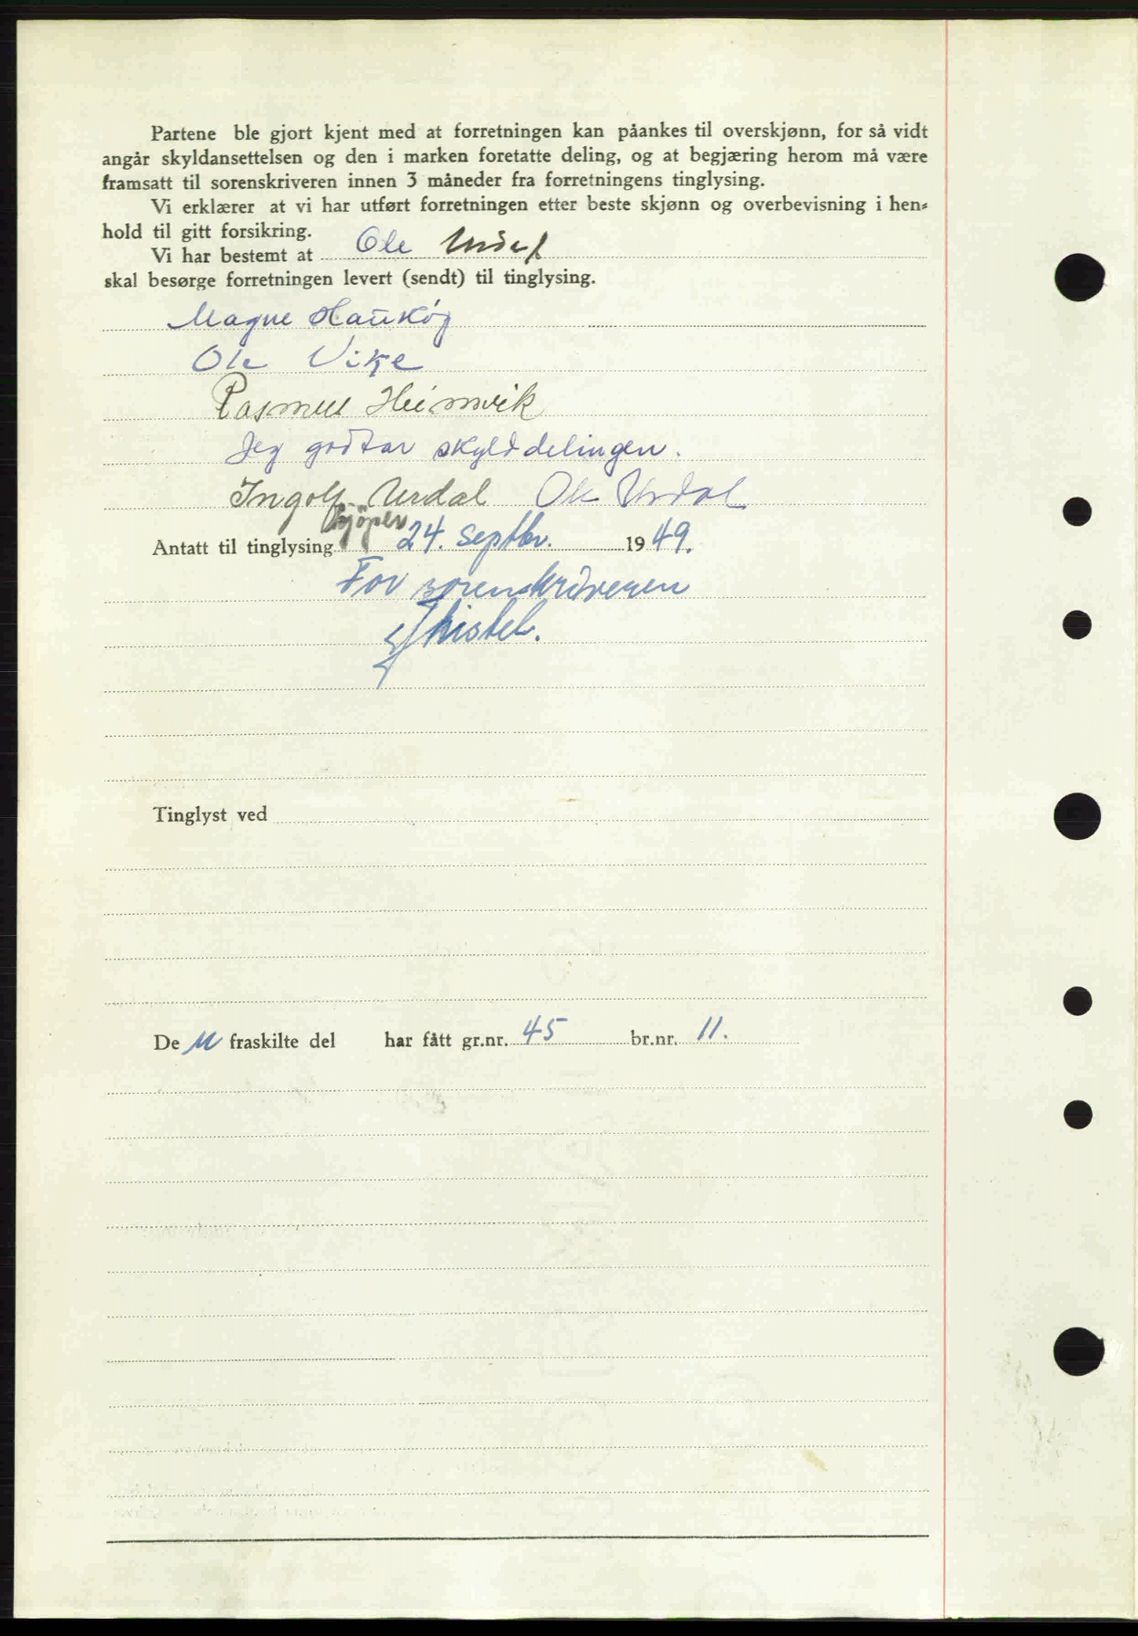 Partene ble gjort kjent med at forretningen kan påankes til overskjønn, for så vidt
angår skyldansettelsen og den i marken foretatte deling, og at begjæring herom må være
framsatt til sorenskriveren innen 3 måneder fra forretningens tinglysing.
Vi erklærer at vi har utført forretningen etter beste skjønn og overbevisning i hen-
hold til gitt forsikring.
Vi har bestemt at Ole Urdal
skal besørge forretningen levert (sendt) til tinglysing.
Magne Haukøy
Ole Vike
Rasmus Heimvik
Jeg godtar skylddelingen.
Ingolf Urdal Ole Urdal
kjöper
Antatt til tinglysing 24. septbr. 1949.
For sorenskriveren
Tinglyst ved
De n fraskilte del har fått gr.nr. 45 br.nr. 11.